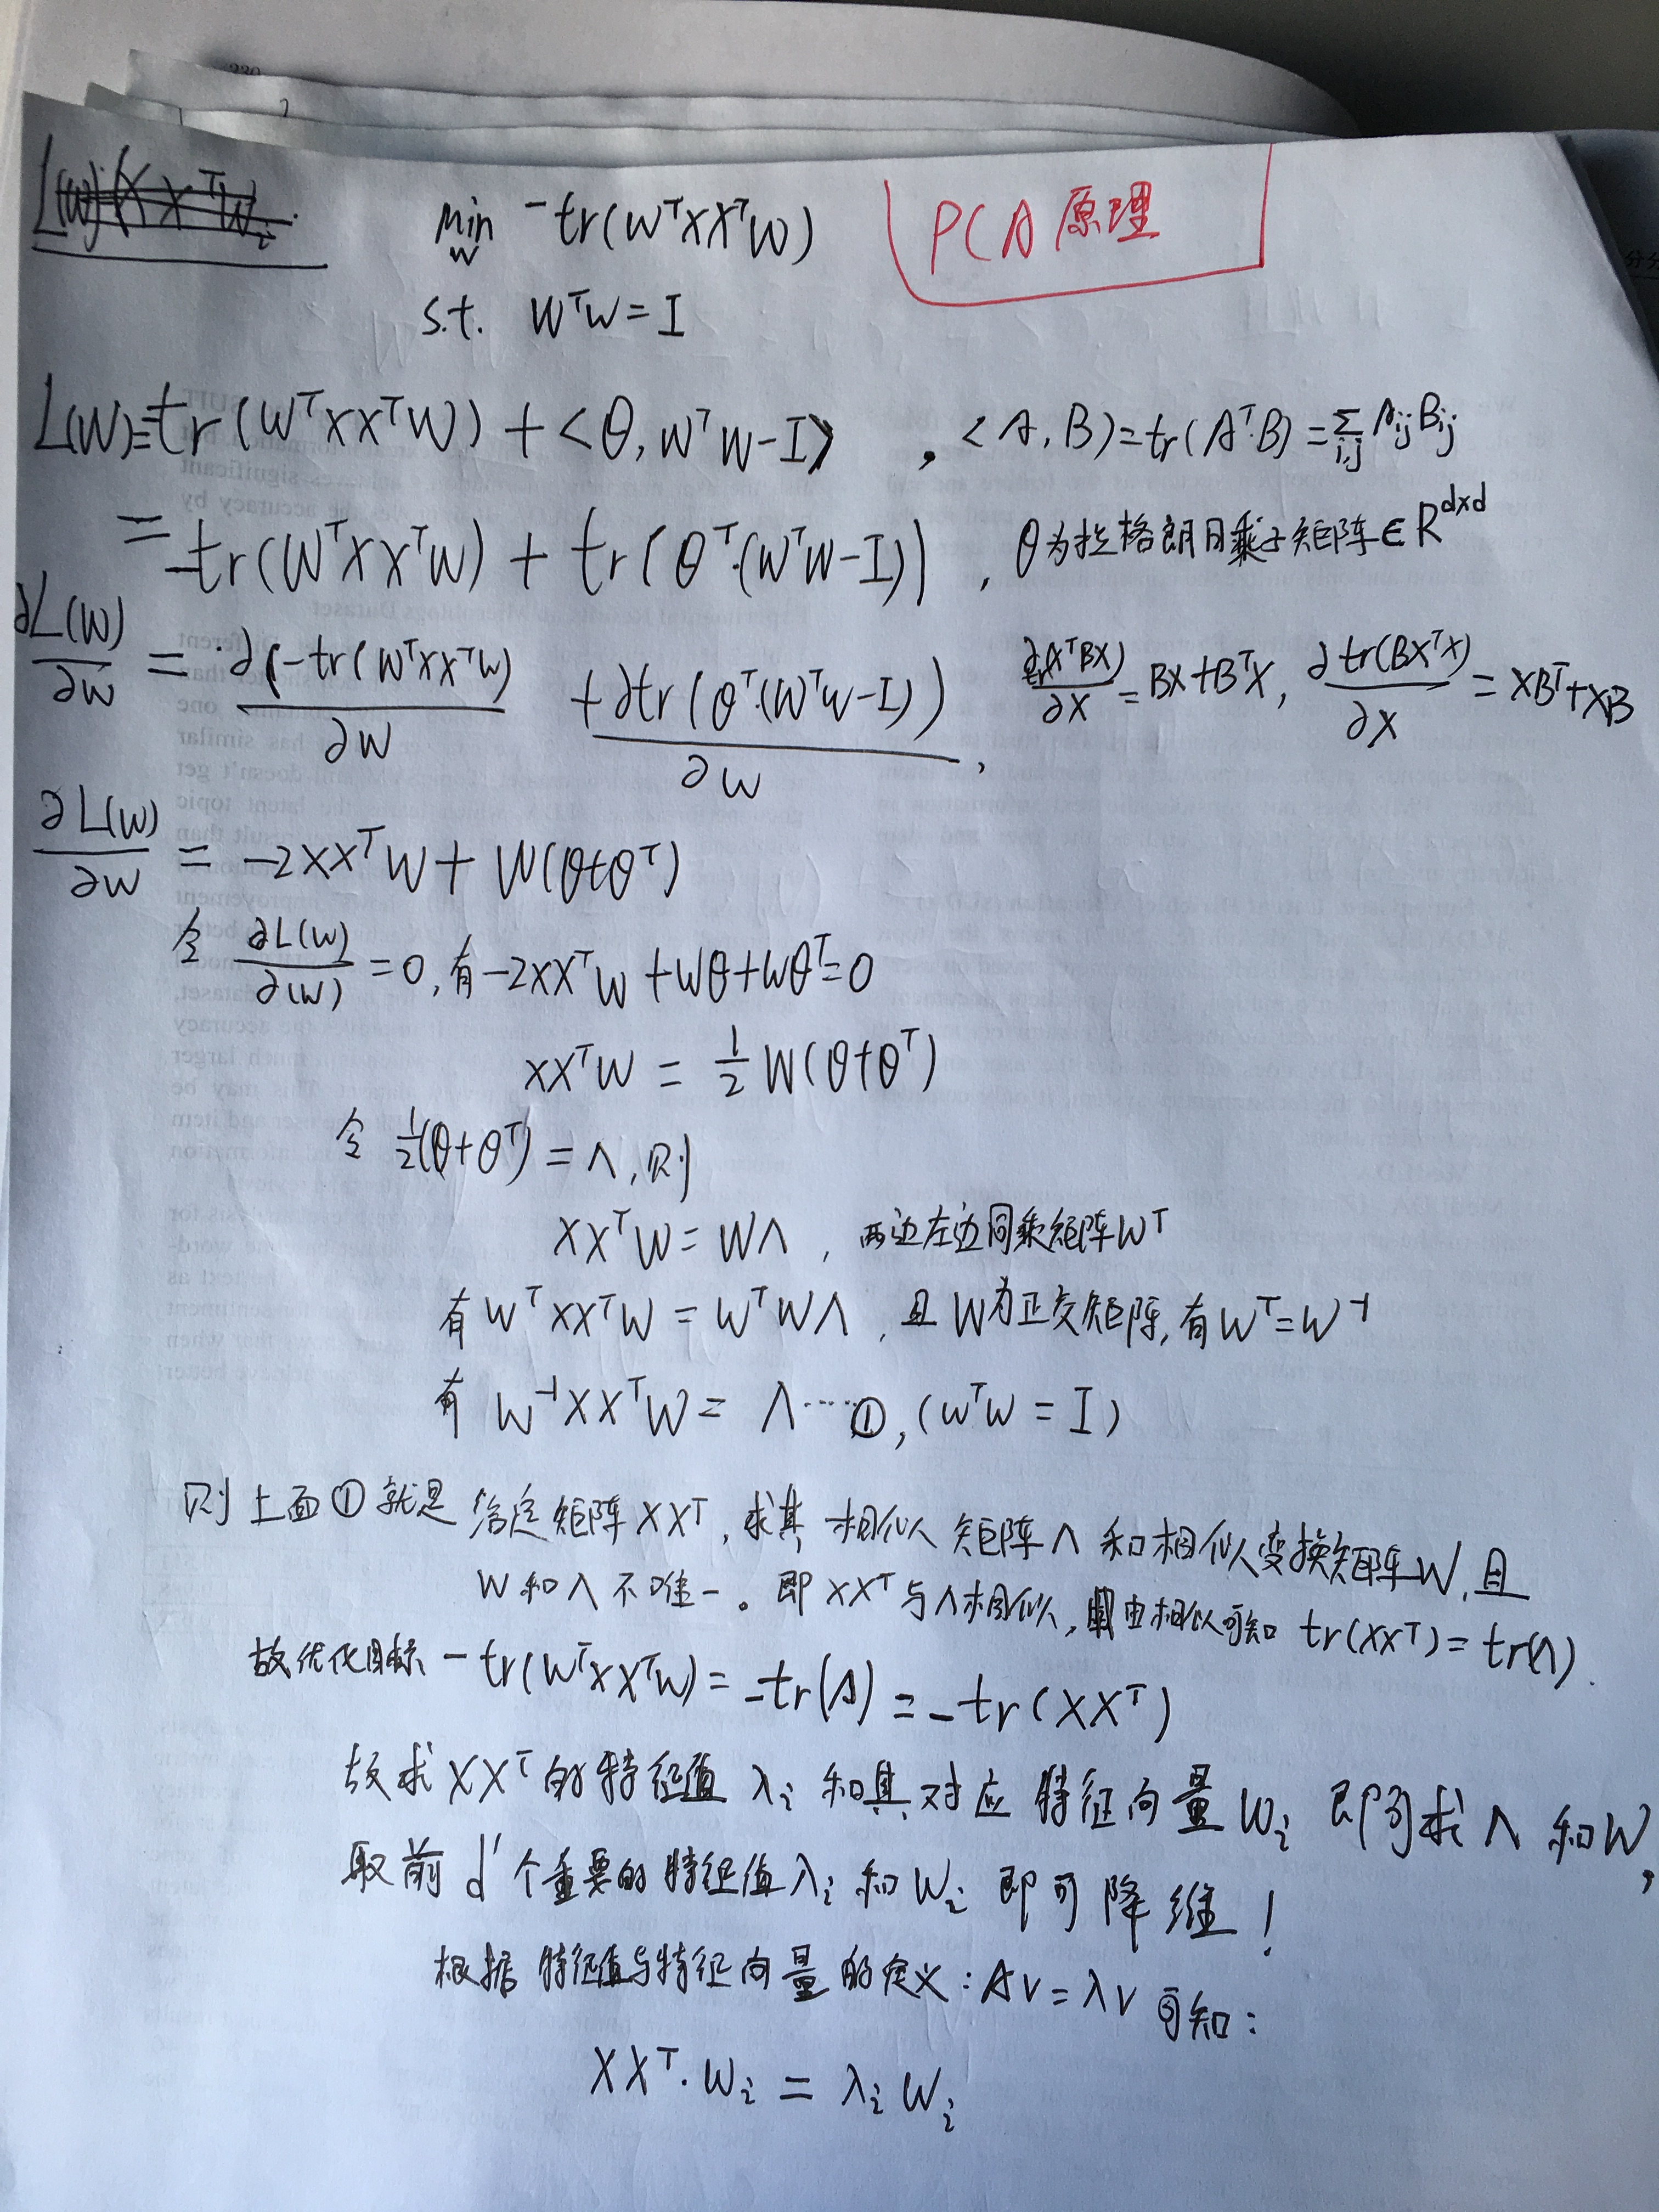 min_W -tr(WᵀXXᵀW)
PCA原理
s.t. WᵀW=I
L(W)=tr(WᵀXXᵀW)+<θ,WᵀW-I>, <A,B)=tr(AᵀB)=∑_{i,j}A_{ij}B_{ij}
=-tr(WᵀXXᵀW)+tr(θᵀ·(WᵀW-I)), θ为拉格朗日乘子矩阵∈R^{d×d}
∂L(W)/∂W = ∂(-tr(WᵀXXᵀW)/∂W + ∂tr(θᵀ·(WᵀW-I))/∂W, ∂tr(XᵀBX)/∂X = BX+BᵀX, ∂tr(BXᵀX)/∂X = XBᵀ+XB
∂L(W)/∂W = -2XXᵀW+W(θ+θᵀ)
令 ∂L(W)/∂(W) =0,有-2XXᵀW+Wθ+Wθᵀ=0
XXᵀW = ½W(θ+θᵀ)
令 ½(θ+θᵀ)=Λ,则
XXᵀW=WΛ, 两边左边同乘矩阵Wᵀ
有WᵀXXᵀW=WᵀWΛ,且W为正交矩阵,有Wᵀ=W⁻¹
有W⁻¹XXᵀW=Λ····①,(WᵀW=I)
则上面①就是给定矩阵XXᵀ,求其相似矩阵Λ和相似变换矩阵W,且
W和Λ不唯一。即XXᵀ与Λ相似,由相似可知tr(XXᵀ)=tr(Λ).
故优化目标-tr(WᵀXXᵀW)=-tr(Λ)=-tr(XXᵀ)
故求XXᵀ的特征值λᵢ和其对应特征向量Wᵢ即可求Λ和W,
取前d'个重要的特征值λᵢ和Wᵢ即可降维!
根据特征值与特征向量的定义:AV=λV可知:
XXᵀ·Wᵢ=λᵢWᵢ